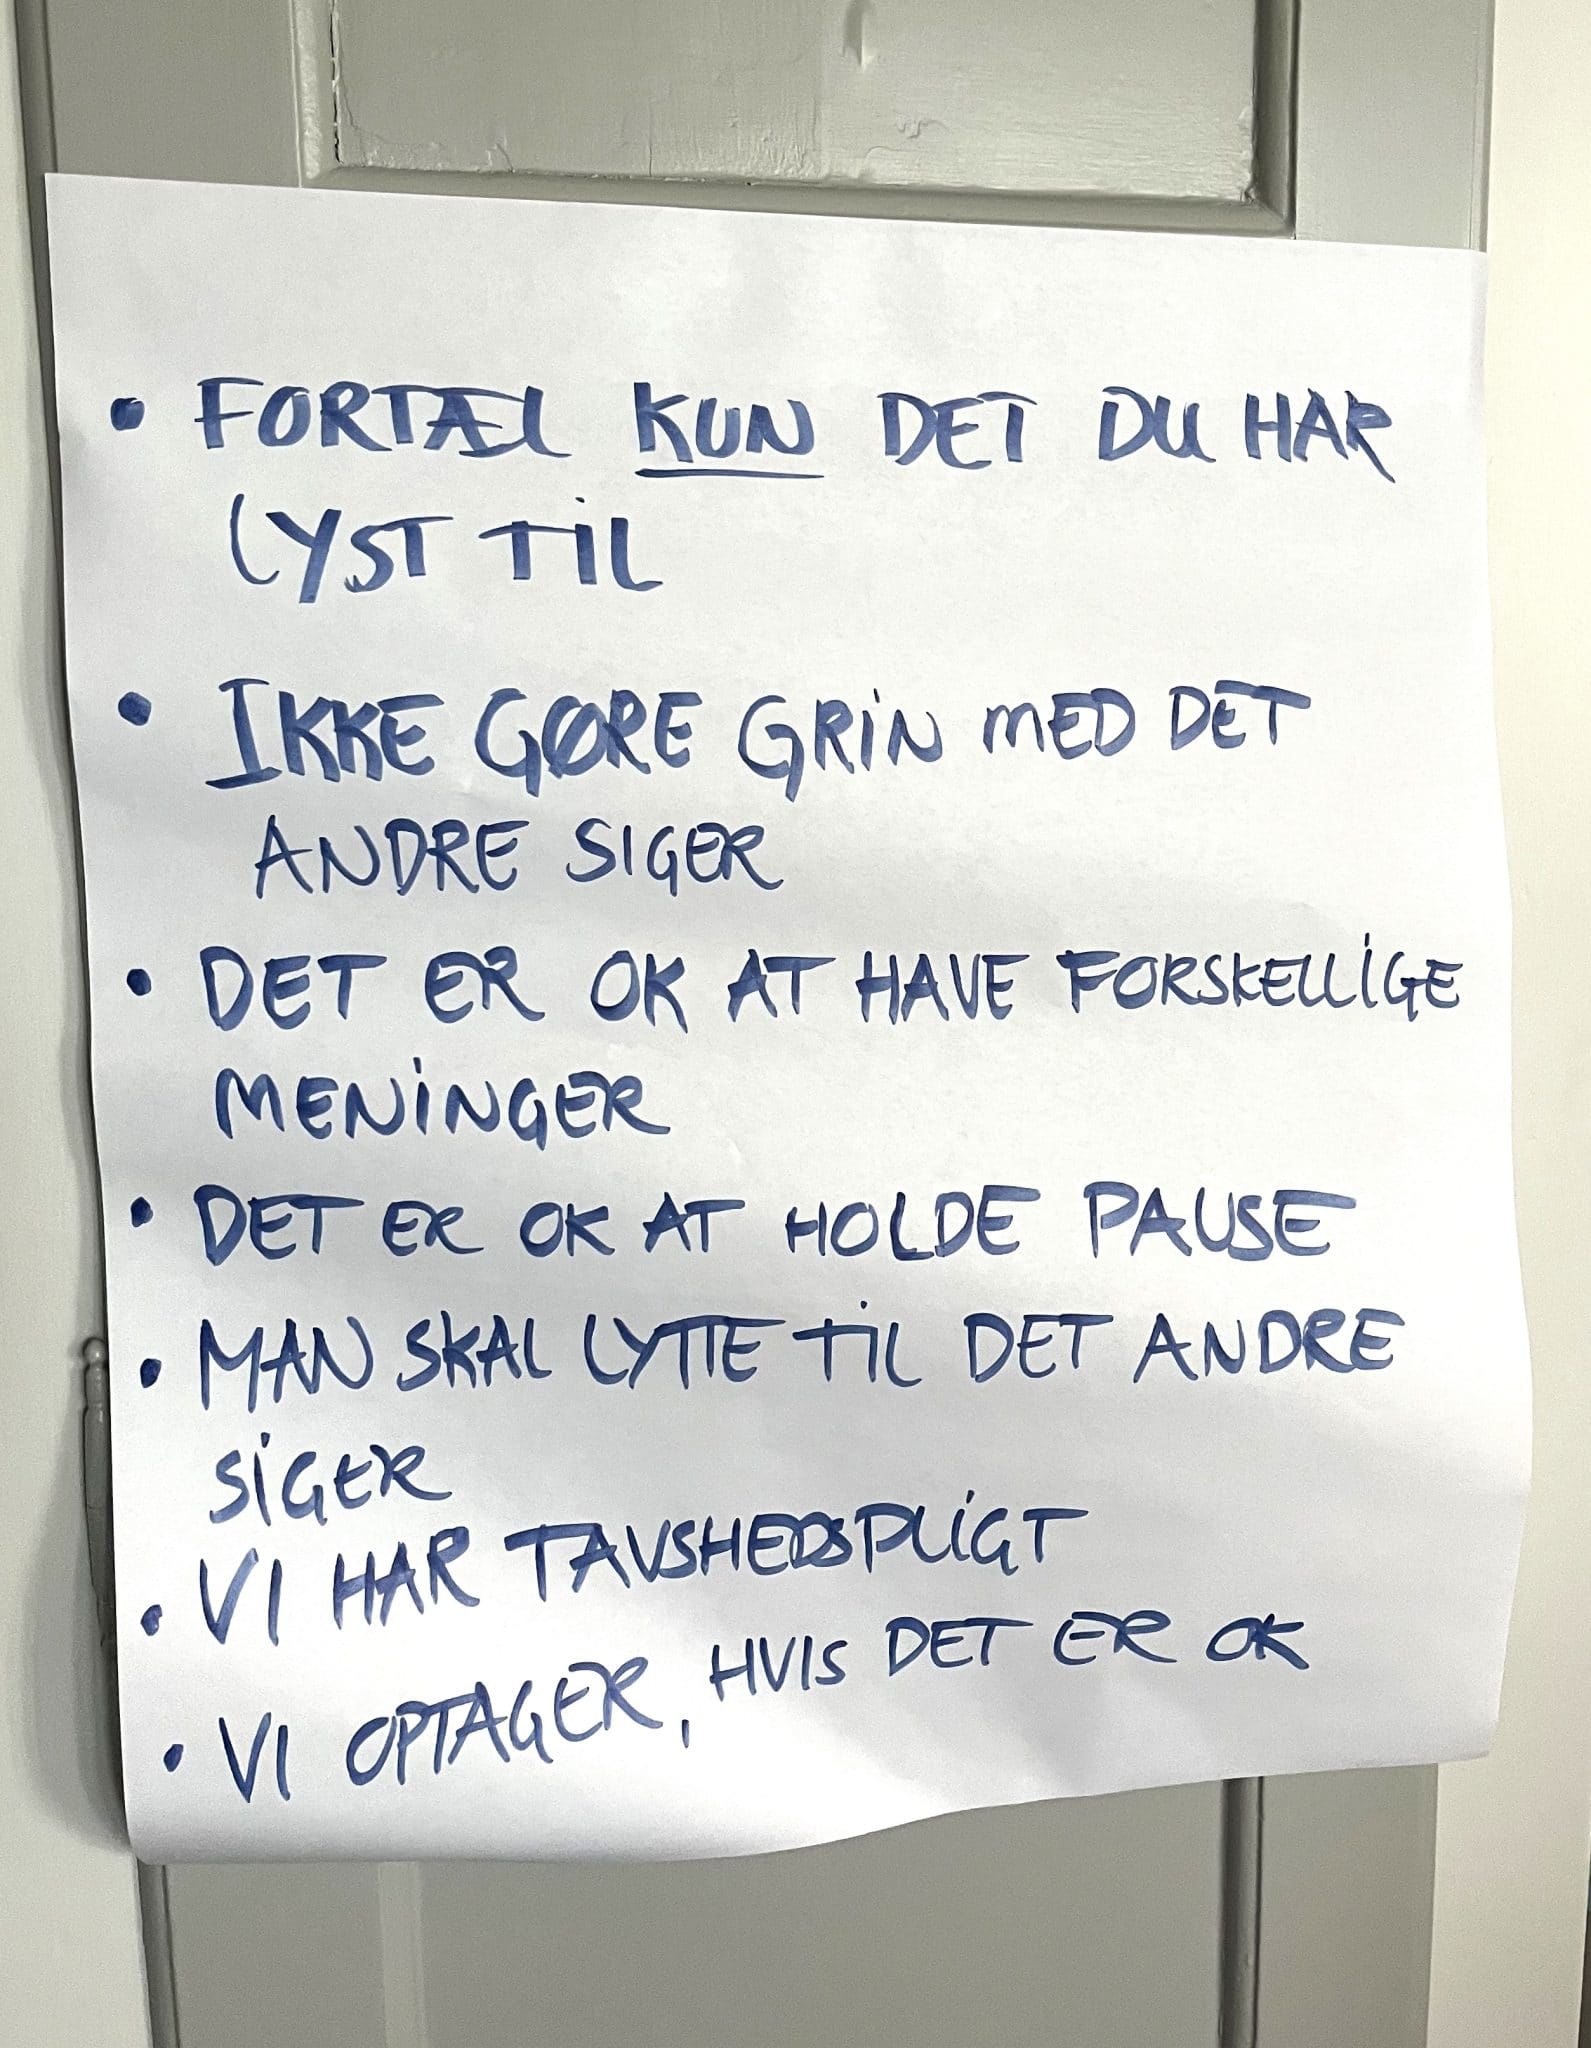 • FORTÆL KUN DET DU HAR
LYST TIL
• IKKE GØRE GRIN MED DET
ANDRE SIGER
• DET ER OK AT HAVE FORSKELLIGE
MENINGER
• DET ER OK AT HOLDE PAUSE
• MAN SKAL LYTTE TIL DET ANDRE
SIGER
• VI HAR TAVSHEDSPLIGT
• VI OPTAGER, HVIS DET ER OK